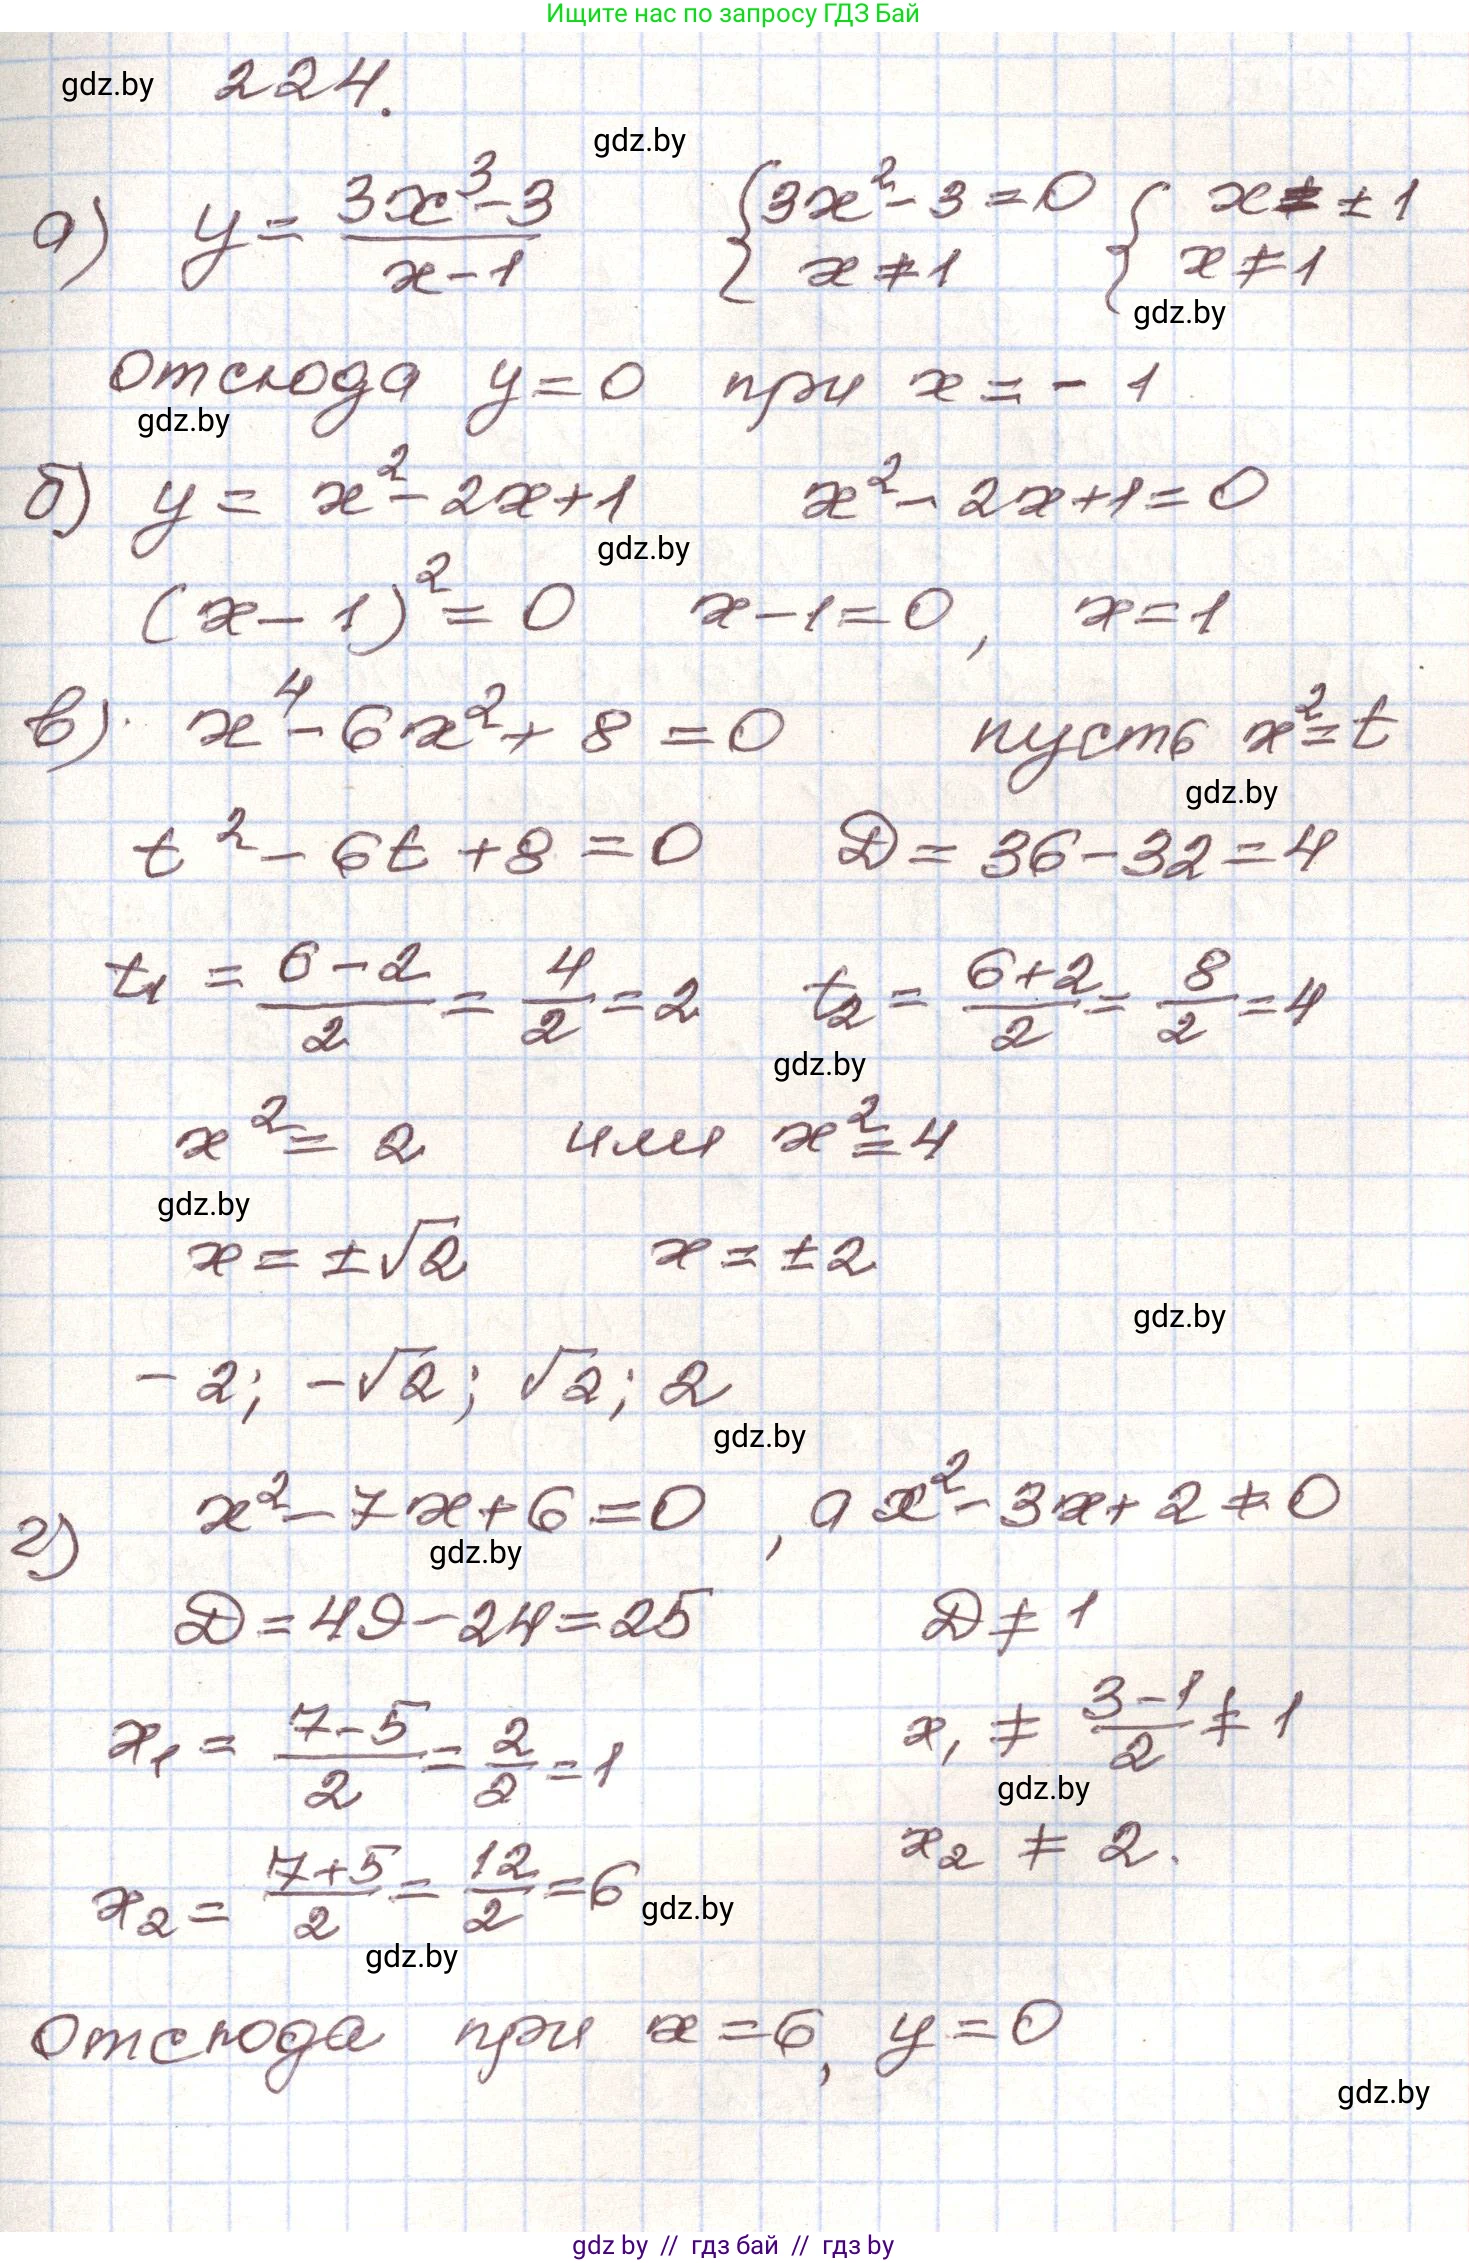 Ищите нас по запросу ГДЗ Бай
gdz.by 224.
gdz.by
а) y = (3x³-3)/(x-1) { 3x²-3=0 { x=±1
x≠1 x≠1
gdz.by
отсюда y=0 при x=-1
gdz.by
б) y = x²-2x+1 x²-2x+1=0
gdz.by
(x-1)²=0 x-1=0, x=1
в) x⁴-6x²+8=0 пусть x²=t
gdz.by
t²-6t+8=0 D=36-32=4
t₁ = (6-2)/2 = 4/2 = 2 t₂ = (6+2)/2 = 8/2 = 4
gdz.by
x²=2 или x²=4
gdz.by
x=±√2 x=±2
gdz.by
-2; -√2; √2; 2
gdz.by
г) x²-7x+6=0, а x²-3x+2≠0
gdz.by
D=49-24=25 D≠1
x₁ = (7-5)/2 = 2/2 = 1 x₁ ≠ (3-1)/2 ≠ 1
gdz.by
x₂ = (7+5)/2 = 12/2 = 6 x₂ ≠ 2.
gdz.by
gdz.by
отсюда при x=6, y=0
gdz.by
gdz by // гдз бай // гдз by